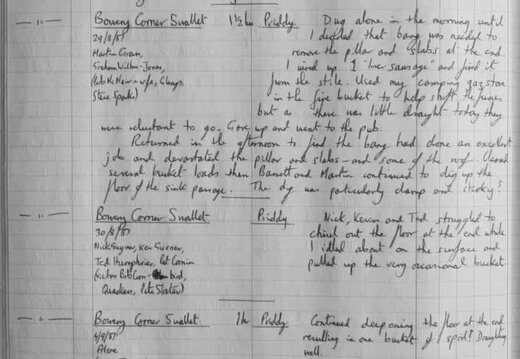 — " — Bowery Corner Swallet 1½ hrs Priddy Dug alone in the morning until
29/8/87 I decided that bang was needed to
Martin Grass, remove the pillar and slabs at the end.
Graham Wilton-Jones, I wired up 1 "liver sausage" and fired it
from the stile. Used my camping gaz stove
in the fire bucket to help shift the fumes,
but as there was little draught today they
were reluctant to go. Gave up and went to the pub.
Returned in the afternoon to find the bang had done an excellent
job and devastated the pillar and slabs - and some of the roof. Cleared
several bucket loads then Barrett and Martin continued to dig up the
floor of the sink passage. The dig was particularly damp and
— " — Bowery Corner Swallet Priddy Nick, Kevin and Ted struggled to
30/8/87 chisel out the floor at the end while
I idled about on the surface and
Ted Humphries, pulled up the very occasional bucket
— " — Bowery Corner Swallet 1h Priddy Continued deepening the floor at the end
4/9/87 resulting in one bucket of spoil! Draughting
Alone well.